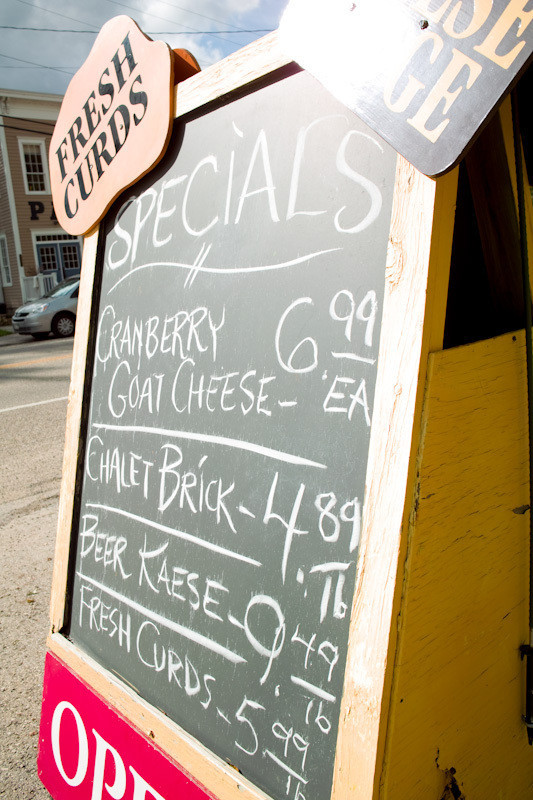 FRESH
CURDS
SPECIALS
CRANBERRY
GOAT CHEESE - 6.99 EA
CHALET BRICK - 4.89 lb
BEER KAESE - 9.49 lb
FRESH CURDS - 5.99 lb
OPE